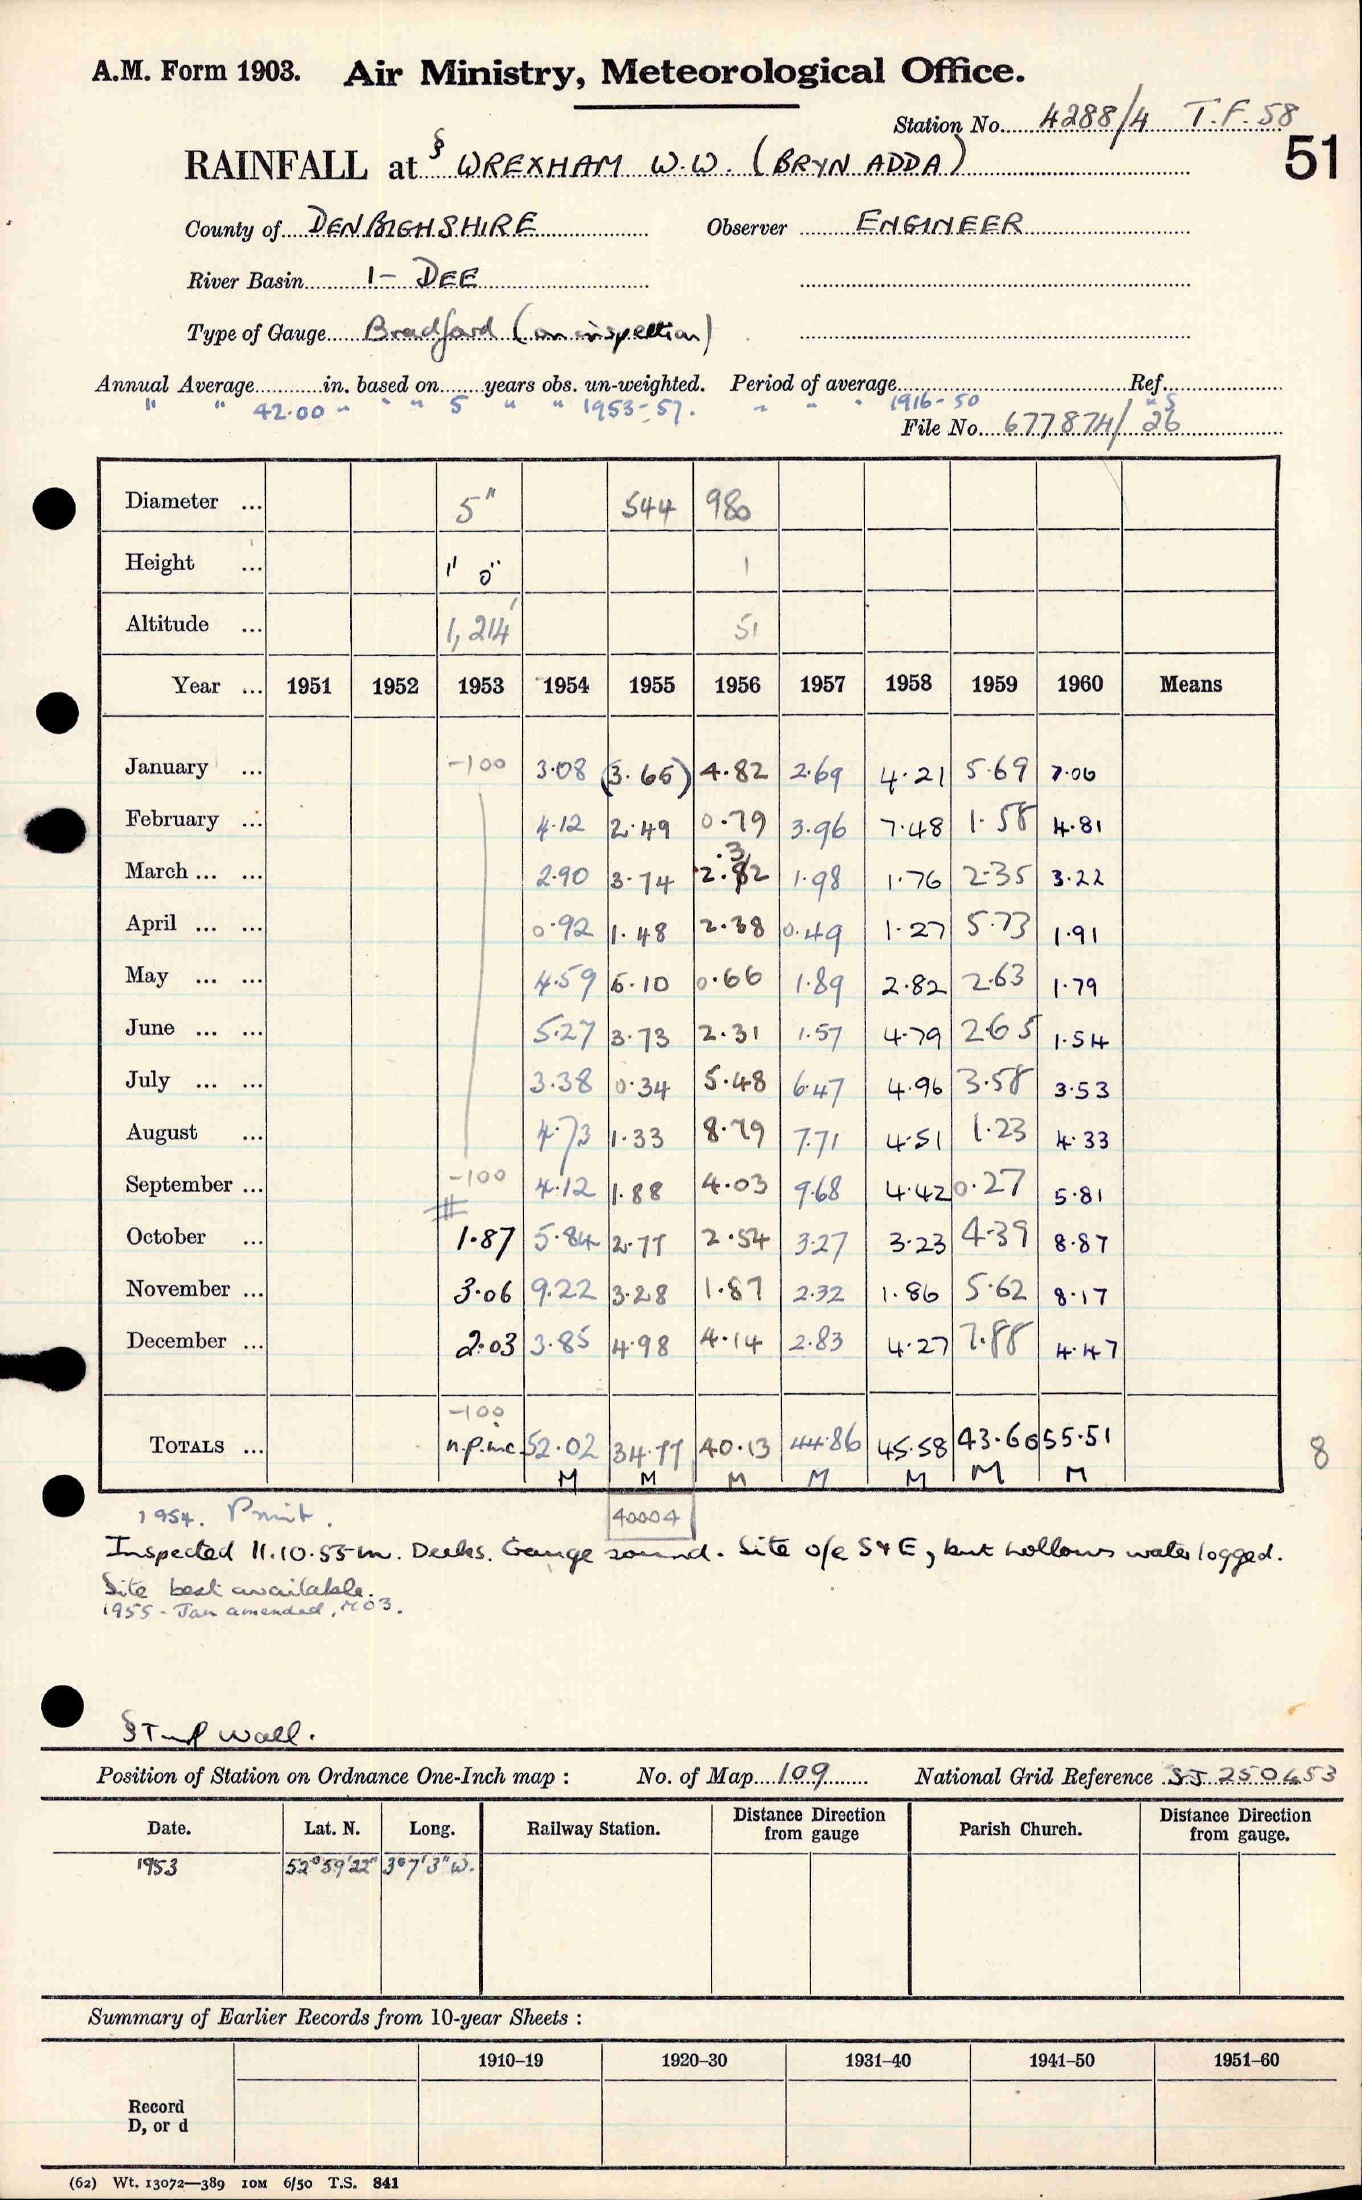 A.M. Form 1903. Air Ministry, Meteorological Office.
Station No. 4288/4 T.F. 58
51
RAINFALL at § WREXHAM W.W. (BRYN ADDA)
County of DENBIGHSHIRE Observer ENGINEER
River Basin 1- DEE
Type of Gauge Bradford (on inspection)
Annual Average in. based on years obs. un-weighted. Period of average Ref.
" " 42.00 " " " 5 " " 1953-57. " " " 1916-50 "S
File No. 677874/26
Diameter ... 5" 544 980
Height ... 1' 0" 1
Altitude ... 1,214' 51
Year ... 1951 1952 1953 1954 1955 1956 1957 1958 1959 1960 Means
January ... -100 3.08 (3.65) 4.82 2.69 4.21 5.69 7.06
February ... 4.12 2.49 0.79 3.96 7.48 1.58 4.81
.3
March ... ... 2.90 3.74 2.82 1.98 1.76 2.35 3.22
April ... ... 0.92 1.48 2.38 0.49 1.27 5.73 1.91
May ... ... 4.59 5.10 0.66 1.89 2.82 2.63 1.79
June ... ... 5.27 3.73 2.31 1.57 4.79 2.65 1.54
July ... ... 3.38 0.34 5.48 6.47 4.96 3.58 3.53
August ... 4.73 1.33 8.79 7.71 4.51 1.23 4.33
September ... -100 4.12 1.88 4.03 9.68 4.42 0.27 5.81
October ... 1.87 5.84 2.77 2.54 3.27 3.23 4.39 8.87
November ... 3.06 9.22 3.28 1.87 2.32 1.86 5.62 8.17
December ... 2.03 3.85 4.98 4.14 2.83 4.27 7.88 4.47
-100
TOTALS ... n.p.inc. 52.02 34.77 40.13 44.86 45.58 43.60 55.51
8
M M M M M M M
1954. Print. 40004
Inspected 11.10.55 Deeks. Gauge sound. Site o/e S & E, but hollows waterlogged.
Site best available.
1955 - Jan amended, MO3.
§ Turf wall.
Position of Station on Ordnance One-Inch map : No. of Map 109 National Grid Reference SJ 250453
Date. Lat. N. Long. Railway Station. Distance Direction from gauge Parish Church. Distance Direction from gauge.
1953 52°59'22" 3°7'3"W.
Summary of Earlier Records from 10-year Sheets :
1910–19 1920–30 1931–40 1941–50 1951–60
Record
D, or d
(62) Wt. 13072—389 10M 6/50 T.S. 841